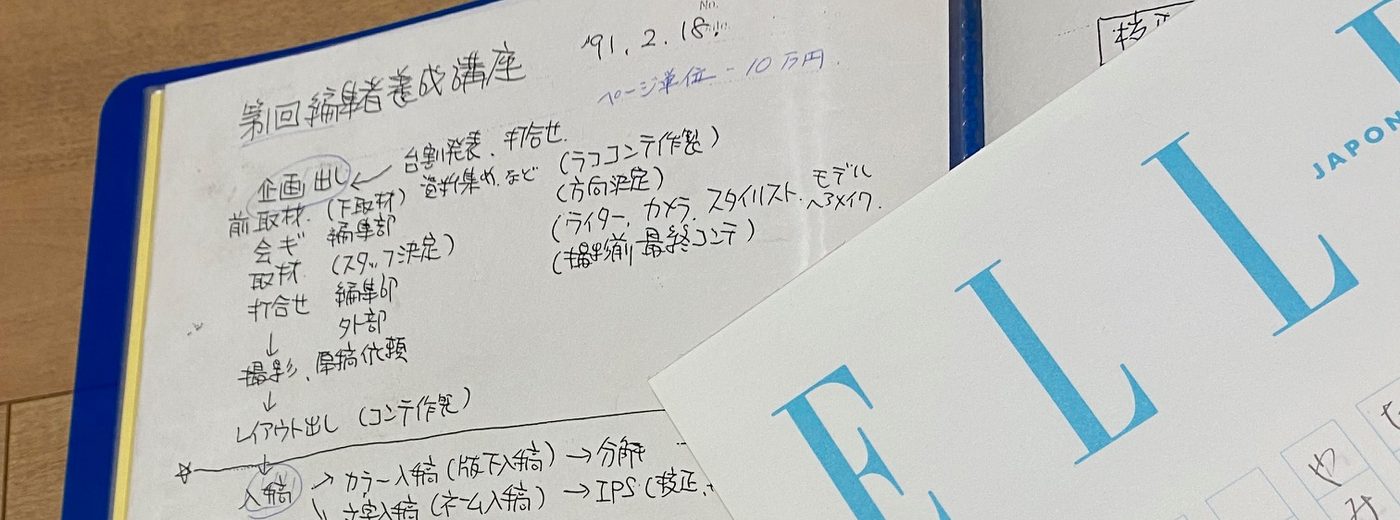 No.
'91. 2. 18.
第1回編集者養成講座
ページ単位-10万円.
企画出し ← 台割発表、打合せ.
資料集め.など (ラフコンテ作製)
前取材. (下取材) (方向決定)
会ギ 編集部 (ライター、カメラ、スタイリスト. モデル ヘアメイク.
取材 (スタッフ決定) (撮影前最終コンテ)
打合せ 編集部
外部
↓
撮影、原稿依頼
↓
レイアウト出し (コンテ作製)
↓
入稿 → カラー入稿 (版下入稿) → 分解
文字入稿 (ネーム入稿) → IPS (校正、
ELLE
JAPON
や
み